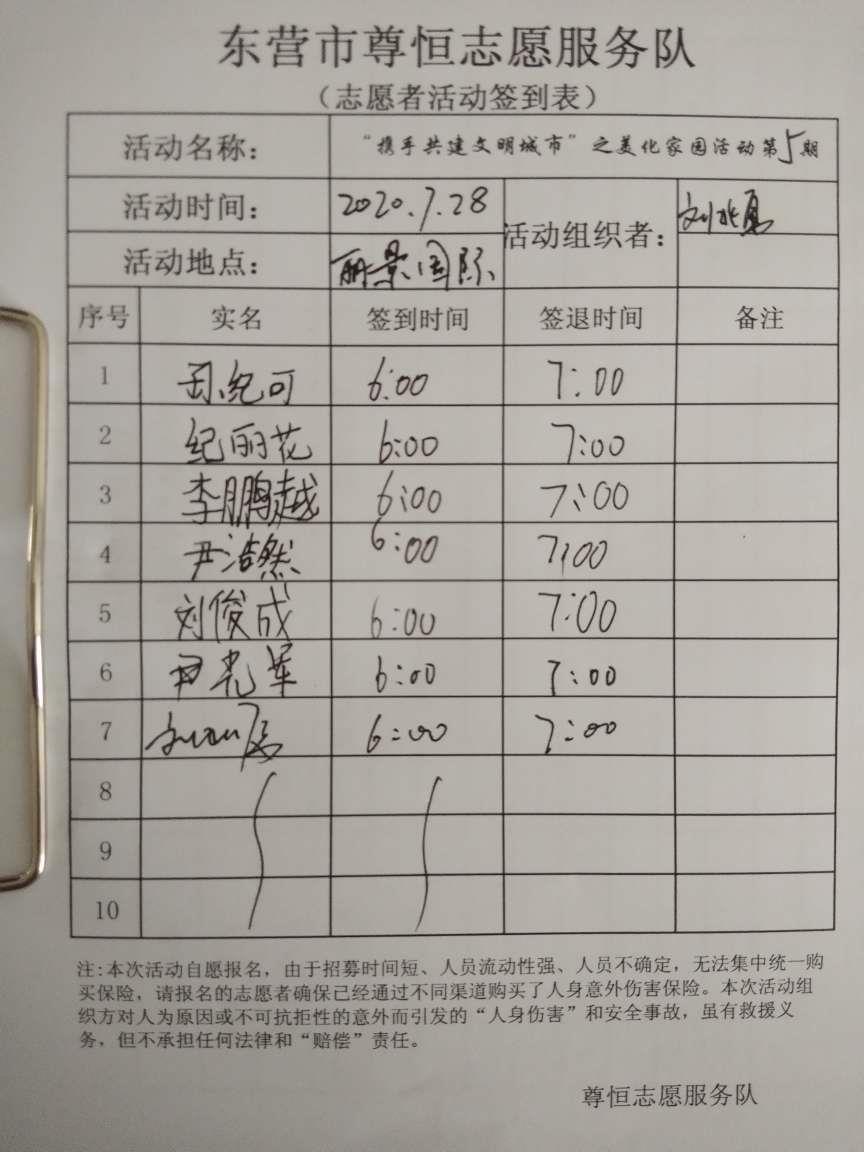 东营市尊恒志愿服务队
（志愿者活动签到表）
活动名称： “携手共建文明城市”之美化家园活动第5期
活动时间： 2020.7.28 活动组织者：
活动地点： 丽景国际
序号 实名 签到时间 签退时间 备注
1 纪可 6:00 7:00
2 纪丽花 6:00 7:00
3 李鹏越 6:00 7:00
4 尹浩然 6:00 7:00
5 刘俊成 6:00 7:00
6 尹光军 6:00 7:00
7 6:00 7:00
8
9
10
注：本次活动自愿报名，由于招募时间短、人员流动性强、人员不确定，无法集中统一购
买保险，请报名的志愿者确保己经通过不同渠道购买了人身意外伤害保险。本次活动组
织方对人为原因或不可抗拒性的意外而引发的“人身伤害”和安全事故，虽有救援义
务，但不承担任何法律和“赔偿”责任。
尊恒志愿服务队